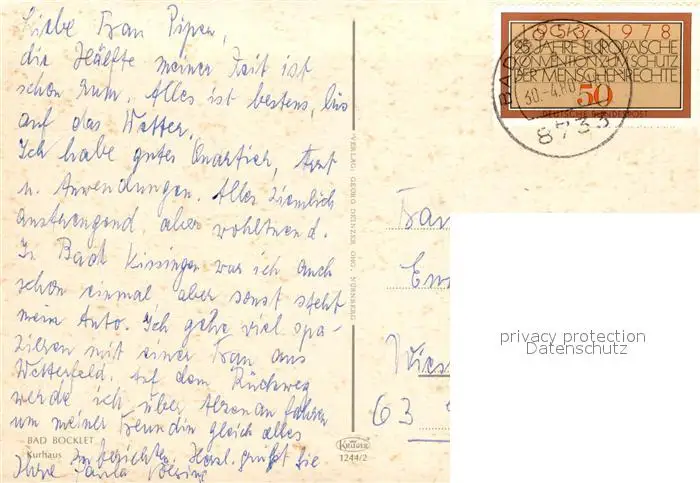 Liebe Frau Piper,
die Hälfte meiner Zeit ist
schon rum. Alles ist bestens, bis
auf das Wetter.
Ich habe gutes Quartier, Arzt
u. Anwendungen. Alles ziemlich
anstrengend, aber wohltuend.
In Bad Kissingen war ich auch
schon einmal aber sonst steht
mein Auto. Ich gehe viel spa-
zieren mit einer Frau aus
Wetterfeld. Auf dem Rückweg
werde ich über Alzenau fahren
um meiner Freundin gleich alles
zu berichten. Herzl. grüßt Sie
Ihre Paula
BAD BOCKLET
Kurhaus
VERLAG: GEORG DEINZER OHG, NÜRNBERG
KRÜGER
1244/2
1978
25 JAHRE EUROPÄISCHE
KONVENTION ZUM SCHUTZ
DER MENSCHENRECHTE
50
DEUTSCHE BUNDESPOST
30.-4.80
8733
Frau
63
privacy protection
Datenschutz